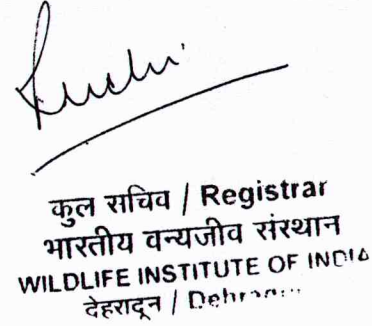 कुल सचिव / Registrar
भारतीय वन्यजीव संस्थान
WILDLIFE INSTITUTE OF INDIA
देहरादून /